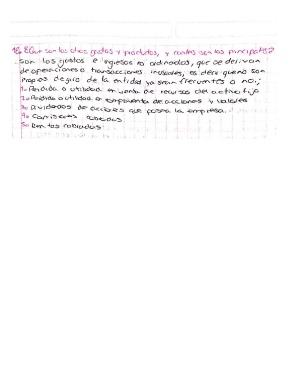 18¿Que son los otros gastos y productos, y cuales son los principales?
Son los gastos e ingresos no ordinarios, que se derivan
de operaciones o transacciones inusuales, es decir que no son
propios del giro de la entidad ya sean frecuentes o no;
1- Perdida o utilidad en venta de recursos del activo fijo
2- Perdida o utilidad en compraventa de acciones y valores
3- Dividendos de acciones que posea la empresa.
4- Comisiones cobradas.
5- Rentas cobradas